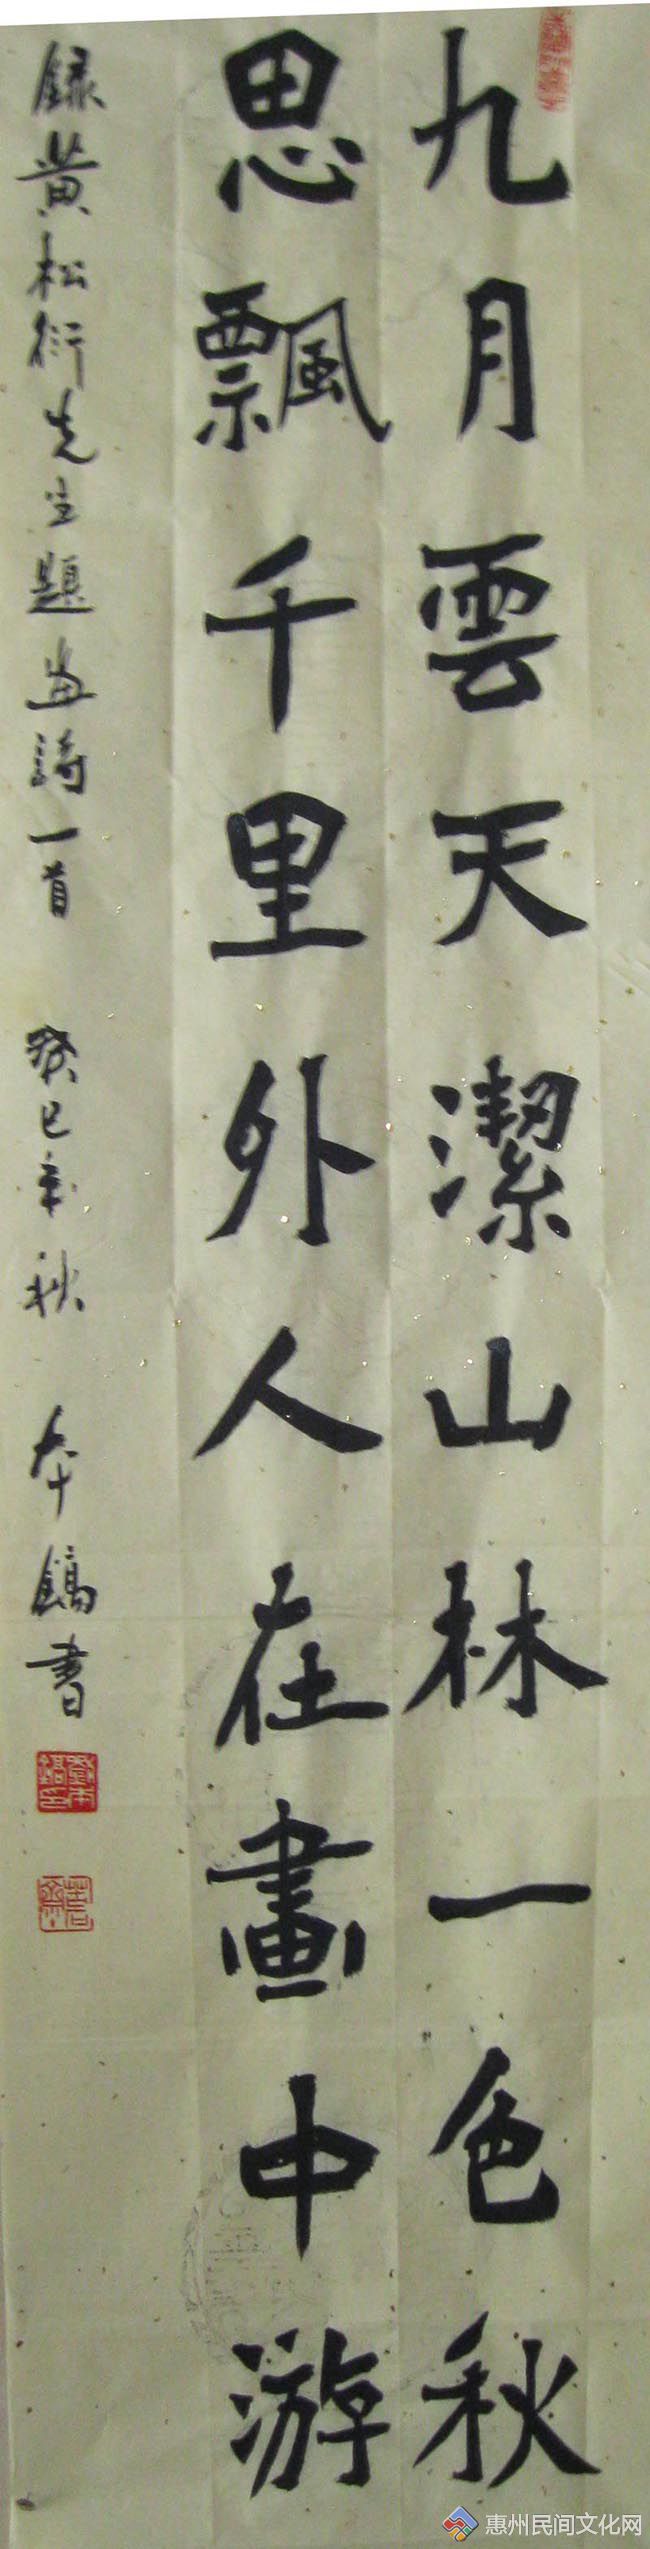 九月雲天潔山林一色秋
思飄千里外人在畫中游
録黄松衍先生題畫詩一首 癸巳年秋 本鎬書
惠州民间文化网